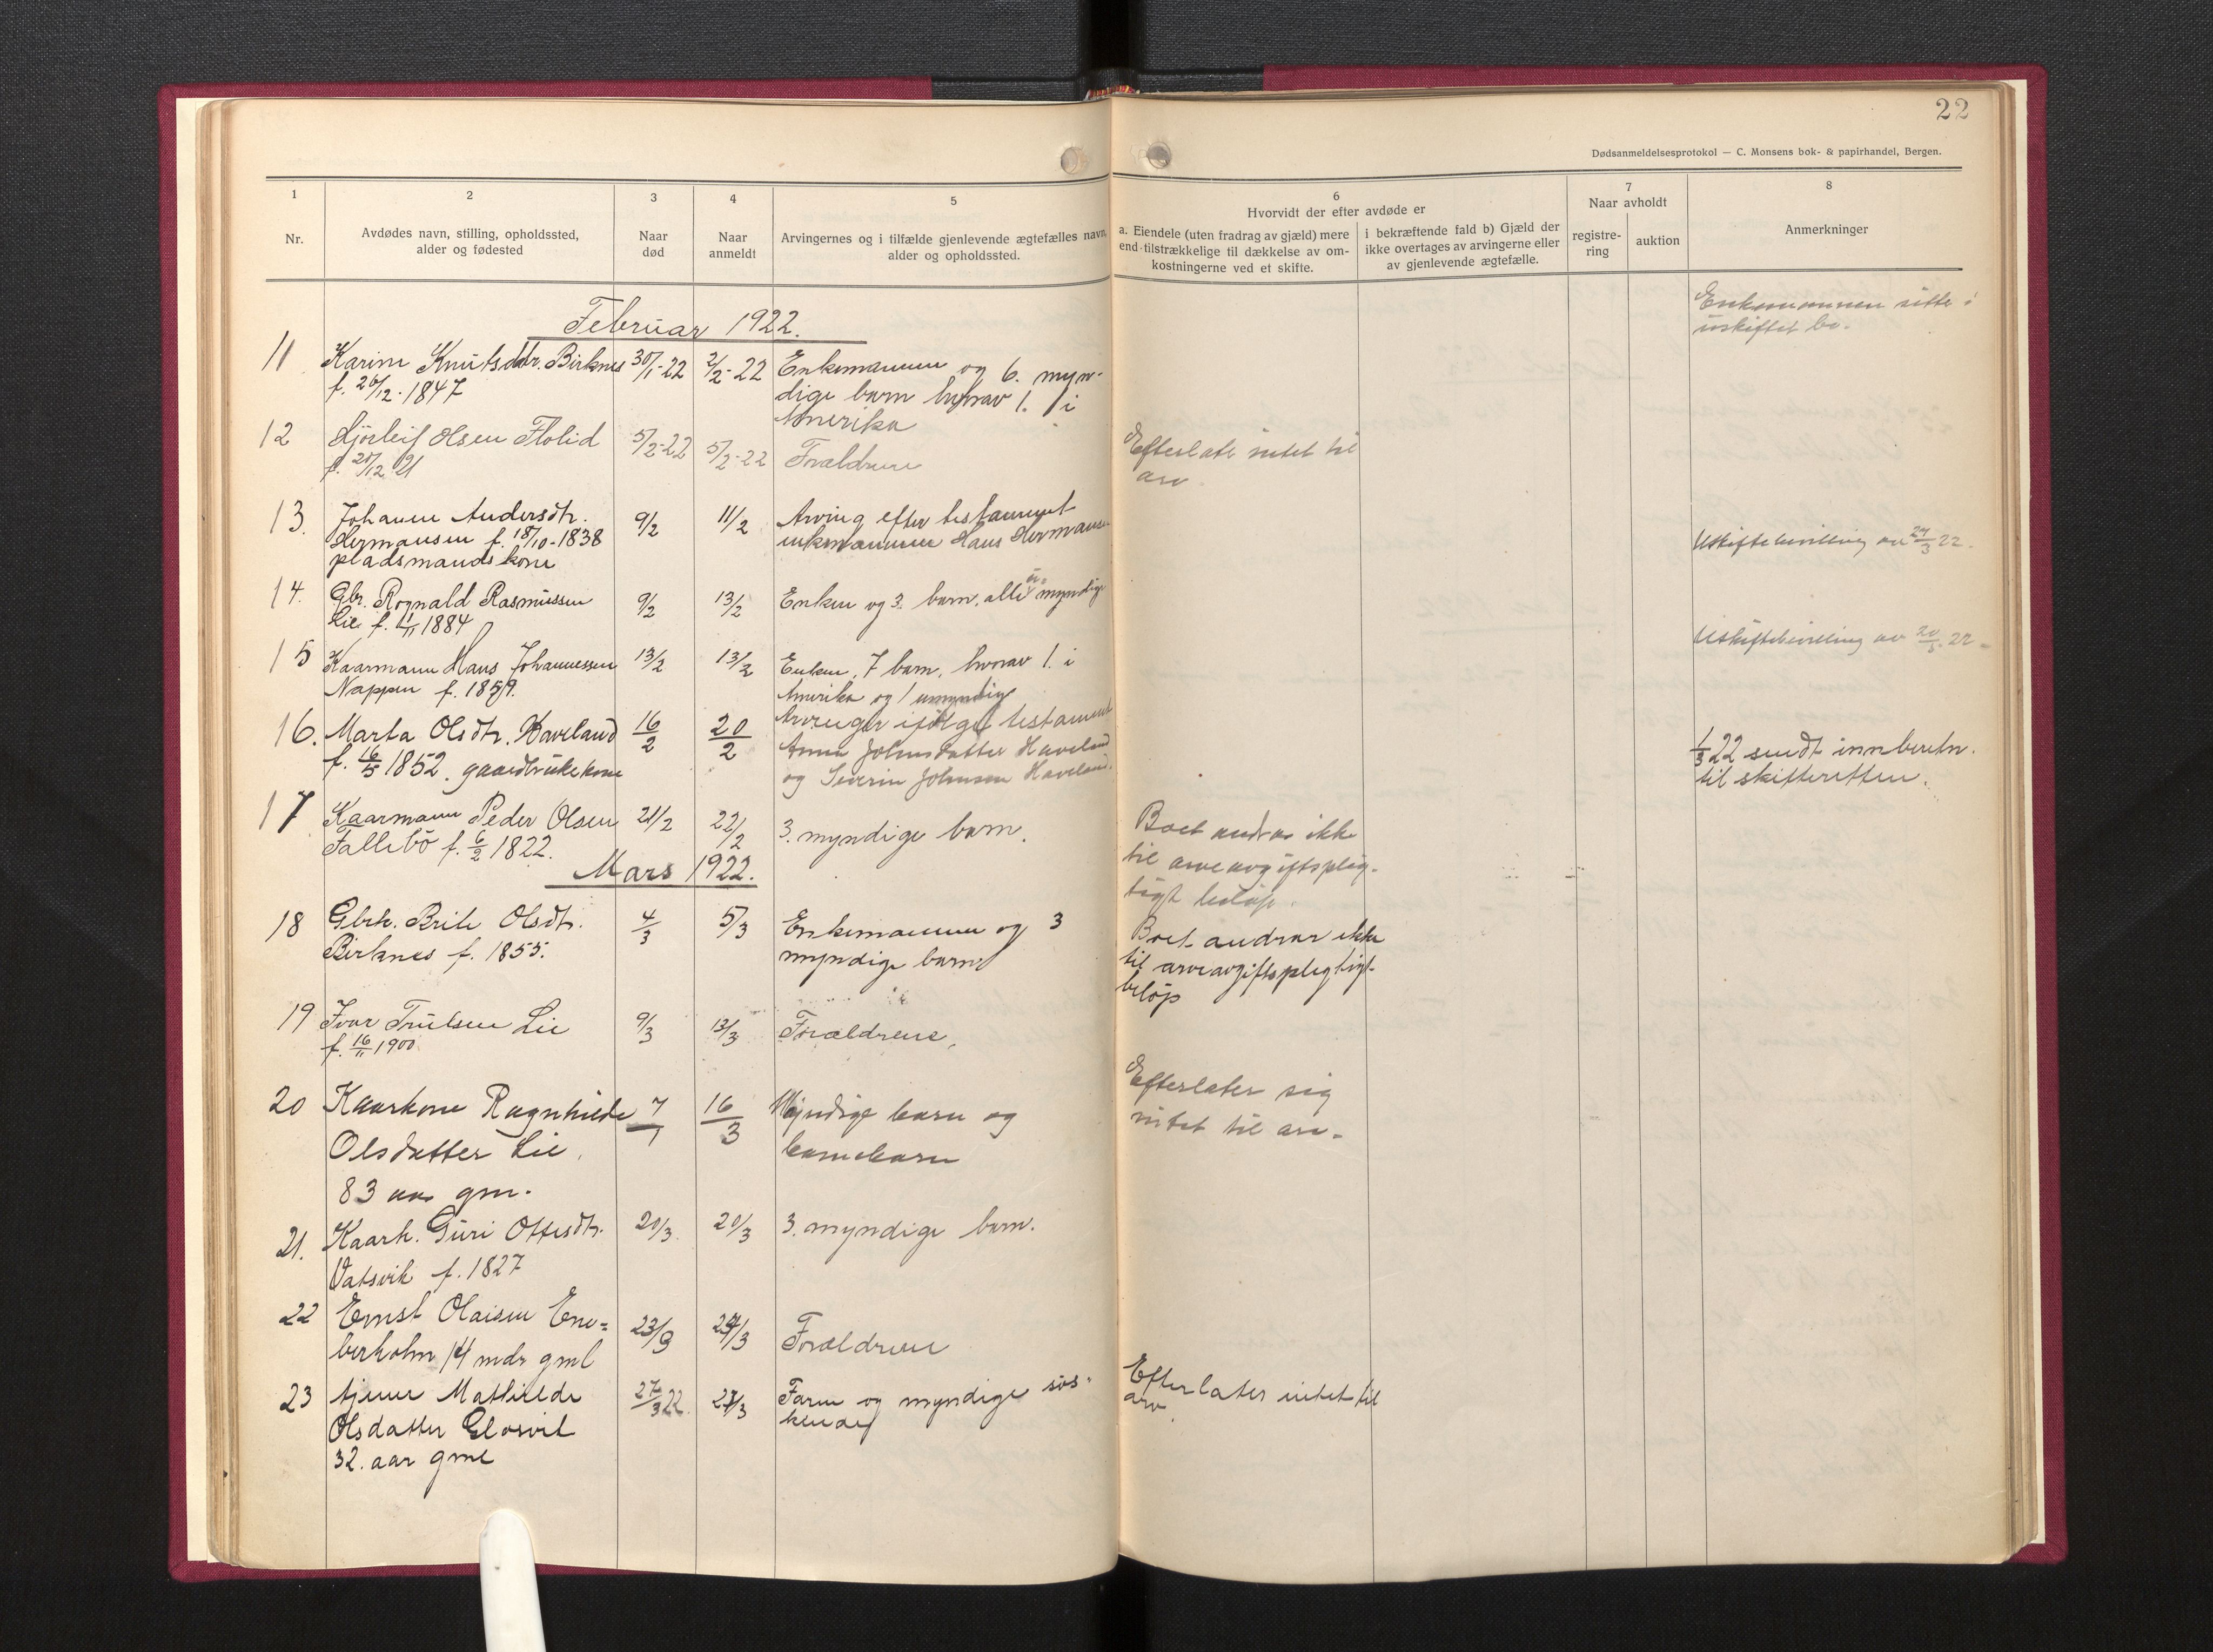 22
Dødsanmeldelsesprotokol — C. Monsens bok- & papirhandel, Bergen.
1
2
3
4
5
6
7
8
Nr.
Avdødes navn, stilling, opholdssted,
alder og fødested
Naar
død
Naar
anmeldt
Arvingernes og i tilfælde gjenlevende ægtefælles navn,
alder og opholdssted.
Hvorvidt der efter avdøde er
a. Eiendele (uten fradrag av gjæld) mere
end tilstrækkelige til dækkelse av om-
kostningerne ved et skifte.
i bekræftende fald b) Gjæld der
ikke overtages av arvingerne eller
av gjenlevende ægtefælle.
Naar avholdt
registre-
ring
auktion
Anmerkninger
Februar 1922.
11 Karine Knutsdtr. Birknes 30/1-22 2/2-22 Enkemannen og 6. myn-
f. 26/12-1847 dige barn hvorav 1. i
Amerika
Enkemannen sitte i
uskiftet bo.
12 Olsen Flolid 5/2-22 5/2-22 Forældrene
f. 20/12 21
Efterlate intet til
arv
13. Johanne Andersdtr. 9/2 11/2 Arving efter testament
Hermansen f. 18/10-1838 enkemannen Hans Hermansen
pladsmandskone
Uskiftebevilling av 24/3 22.
14. Gbr. Rognald Rasmussen 9/2 13/2 Enken og 3. barn, alle u-myndige
Lie f. 1/11 1884
Uskiftebevilling av 20/3. 22-
15 Kaarmann Hans Johannessen 13/2 13/2 Enken, 7 barn, hvorav 1. i
Nappen f. 1859. Amerika og 1 umyndig
16. Marta Olsdtr. Haveland 16/2 20/2 Arvinger ifølge testament
f. 16/5 1852. gaardbrukekone Anna Johnsdatter Haveland
og Severin Johnsen Haveland.
1/3 22 sendt innberetn.
til skifteretten.
17 Kaarmann Peder Olsen 21/2 22/2 3. myndige barn.
Fallebö f. 6/2 1822.
Boet andrar ikke
til arveavgiftsplig-
tigt beløp.
Mars 1922.
18 Gbrk. Brite Olsdtr. 4/3 5/3 Enkemannen og 3
Birknes f. 1855. myndige barn
Boet andrar ikke
til arveavgiftspligtigt
beløp
19 Ivar Trulsen Lie 9/3 13/3 Forældrene,
f. 16/11 1900
20 Kaarkone Ragnhilde 7/1 16/3 Myndige barn og
Olsdatter Lie, barnebarn
83 aar gm.
Efterlater sig
intet til arv.
21. Kaark. Guri Ottesdtr. 20/3. 20/3 3. myndige barn.
Vatsvik f. 1827
22 Ernst Olaisen Ene= 23/3 24/3 Forældrene
berholm, 14 mdr gml
23 tjener Mathilde 27/3 22. 27/3 Faren og myndige søs-
Olsdatter Glosvik kende
32. aar gml
Efterlater intet til
arv.